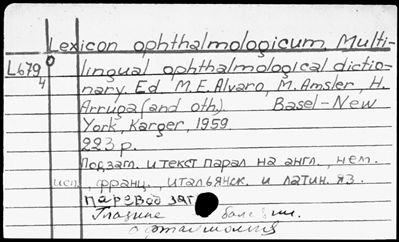 Lexicon ophthalmologicum. Multi-
L679 lingual ophthalmological dictio-
4 nary. Ed. M.E. Alvaro, M. Amsler, H.
Arruga (and oth). Basel-New
York, Karger, 1959.
223 p.
Подзаг. и текст парал на англ., нем.
исп., франц., итальянск. и латин. яз.
Перевод заг.
Глазные болезни.
офтальмология